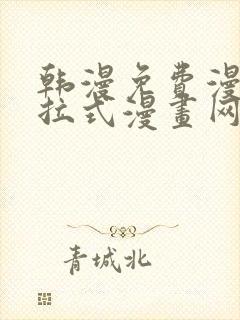 韩漫免费漫
拉式漫畫网
青城北